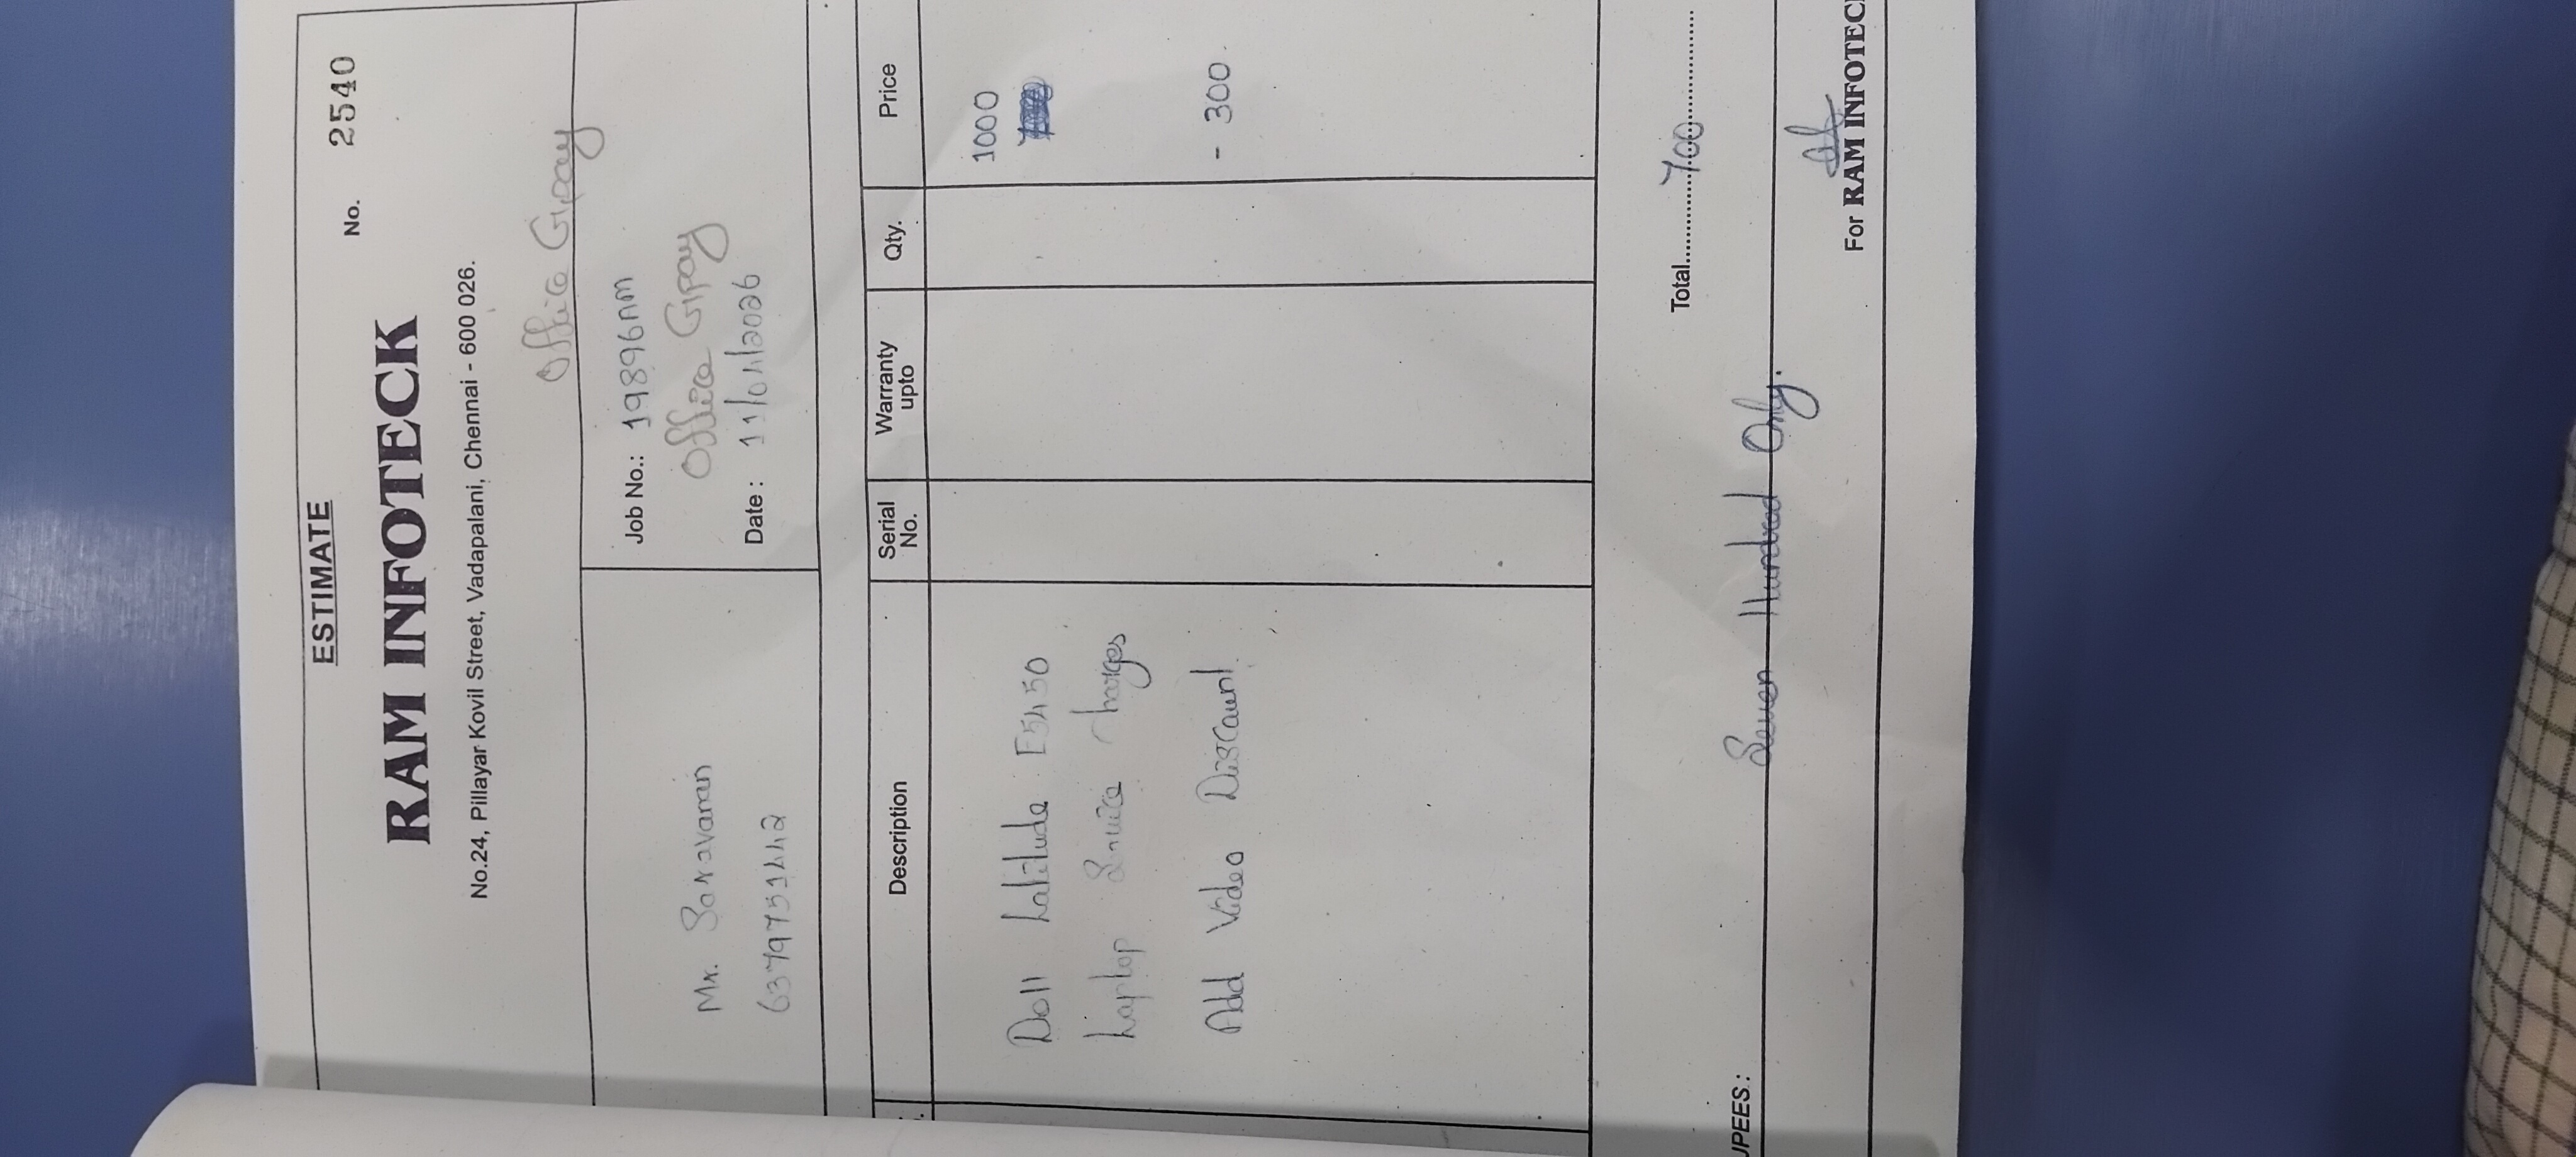 ESTIMATE
No. 2540
RAM INFOTECK
No.24, Pillayar Kovil Street, Vadapalani, Chennai - 600 026.
Office Gpay
Mr. Saravanan
6379751442
Job No.: 19896nm
Office Gpay
Date : 11/01/2026
Description Serial No. Warranty upto Qty. Price
1000
Dell Latitude E5450
Laptop Service Charges
Add Video Discount - 300
Total 700
UPEES.: Seven Hundred Only.
For RAM INFOTEC